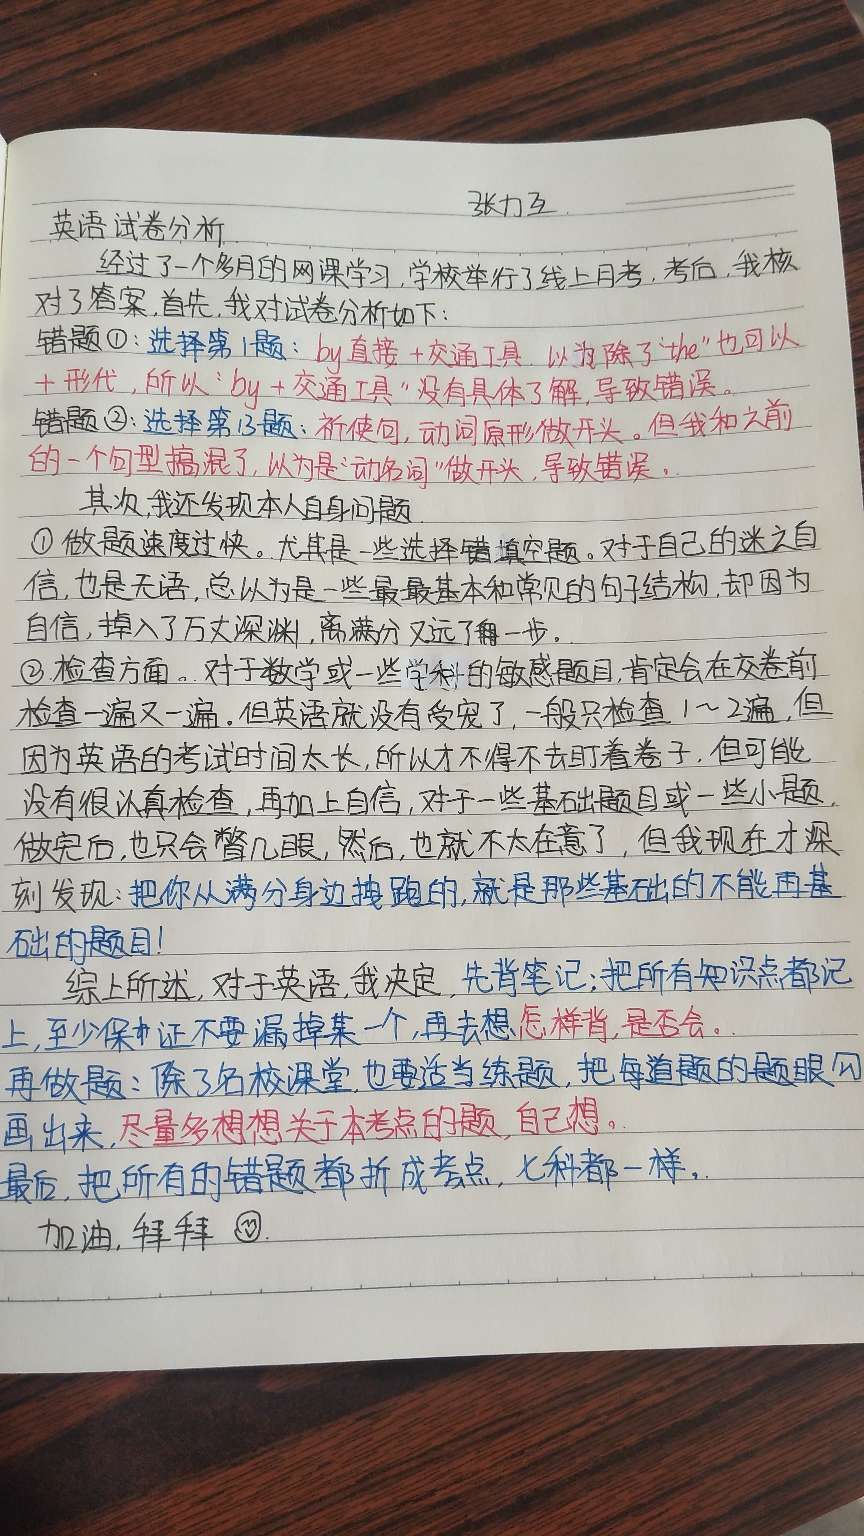 张力互
英语试卷分析
经过了一个多月的网课学习,学校举行了线上月考,考后,我核
对了答案,首先,我对试卷分析如下:
错题①:选择第1题:by直接+交通工具,以为除了"the"也可以
+形代,所以"by+交通工具"没有具体了解,导致错误。
错题②:选择第13题:祈使句,动词原形做开头。但我和之前
的一个句型搞混了,以为是"动名词"做开头,导致错误。
其次,我还发现本人自身问题
①做题速度过快。尤其是一些选择错填空题。对于自己的迷之自
信,也是无语,总以为是一些最最基本和常见的句子结构,却因为
自信,掉入了万丈深渊,离满分又远了一步。
②检查方面。对于数学或一些学科的敏感题目,肯定会在交卷前
检查一遍又一遍。但英语就没有受宠了,一般只检查1～2遍,但
因为英语的考试时间太长,所以才不得不去盯着卷子,但可能
没有很认真检查,再加上自信,对于一些基础题目或一些小题,
做完后,也只会瞥几眼,然后,也就不太在意了,但我现在才深
刻发现:把你从满分身边拽跑的,就是那些基础的不能再基
础的题目!
综上所述,对于英语,我决定,先背笔记;把所有知识点都记
上,至少保证不要漏掉某一个,再去想怎样背,是否会。
再做题:除了名校课堂,也要适当练题,把每道题的题眼勾
画出来,尽量多想想关于本考点的题,自己想。
最后,把所有的错题都折成考点,七科都一样。
加油,拜拜